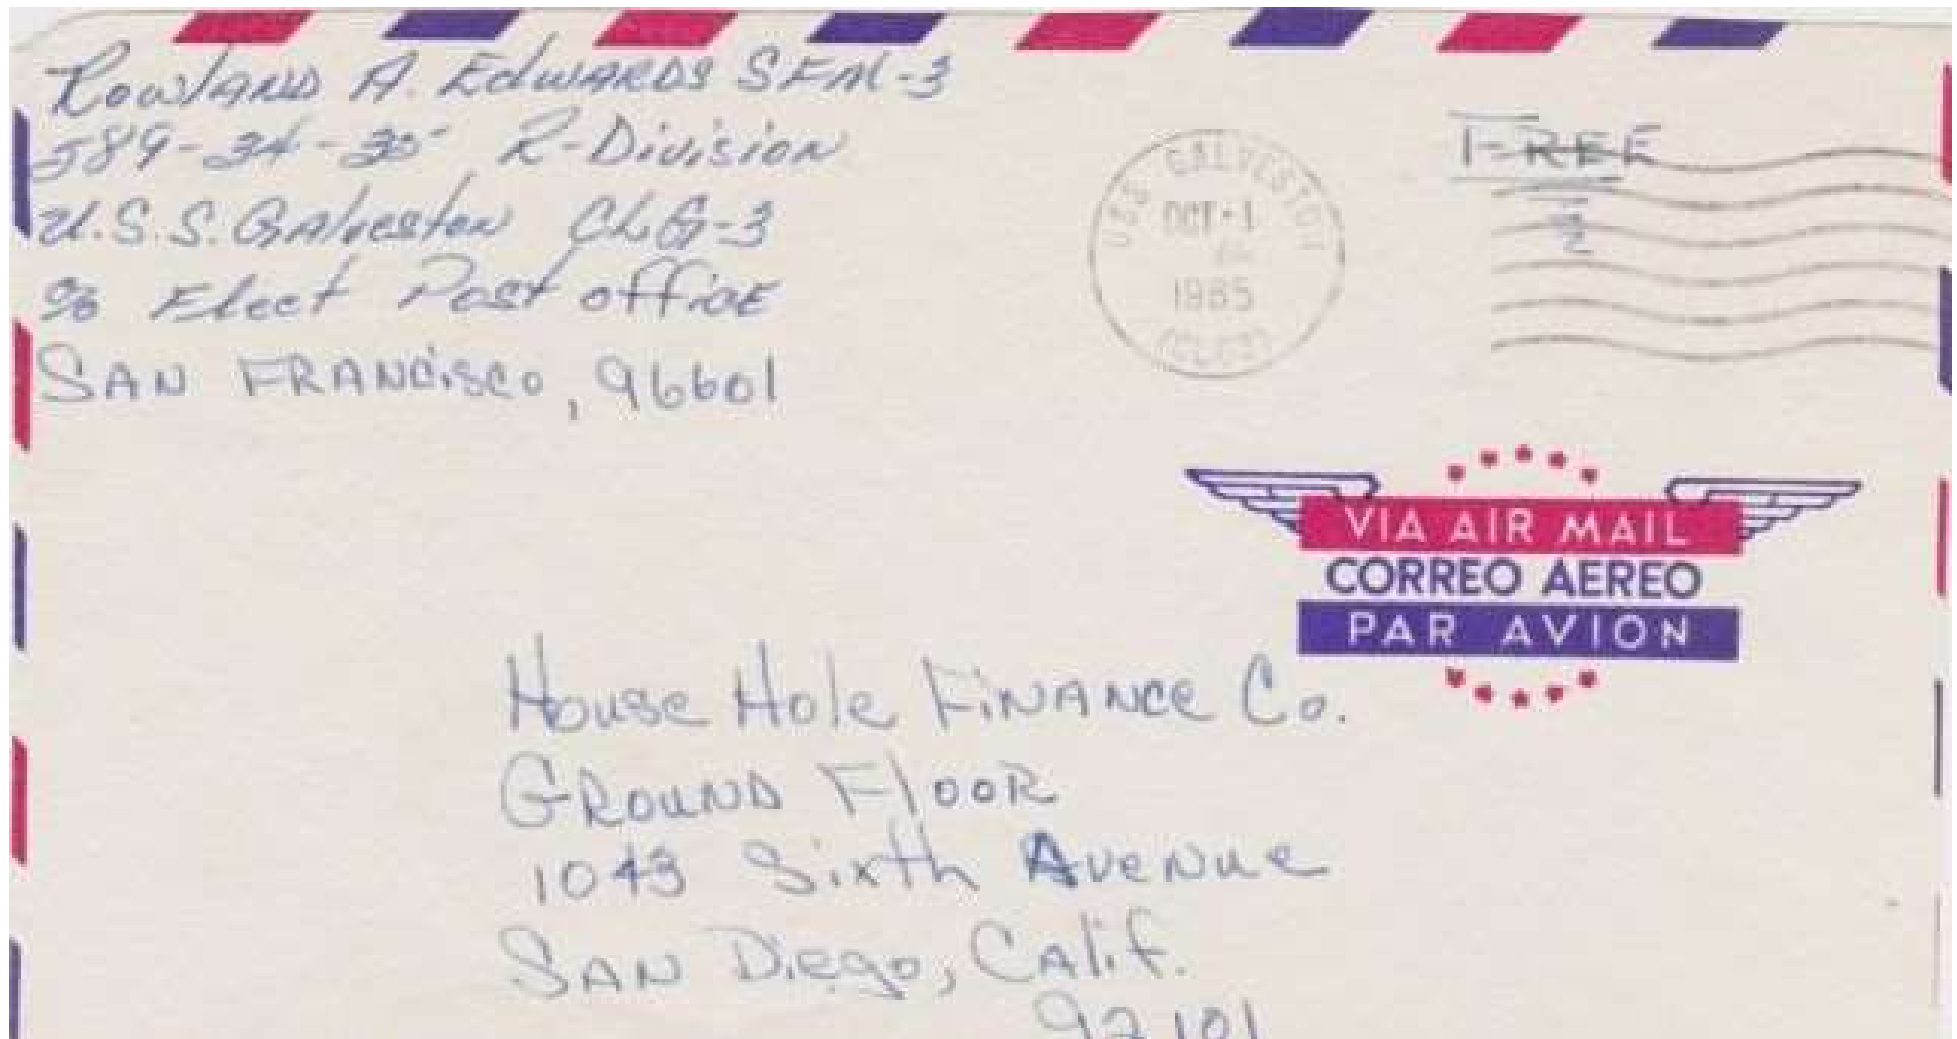 Rowland A. Edwards SFM-3
589-34-35 R-Division
U.S.S. Galveston CLG-3
% Fleet Post office
SAN FRANCisco, 96601
USS GALVESTON
OCT 1
1965
(CLG3)
FREE
VIA AIR MAIL
CORREO AEREO
PAR AVION
House Hole FiNANce Co.
GROUND FlooR
1043 Sixth AveNue
SAN Diego, CAlif.
92101